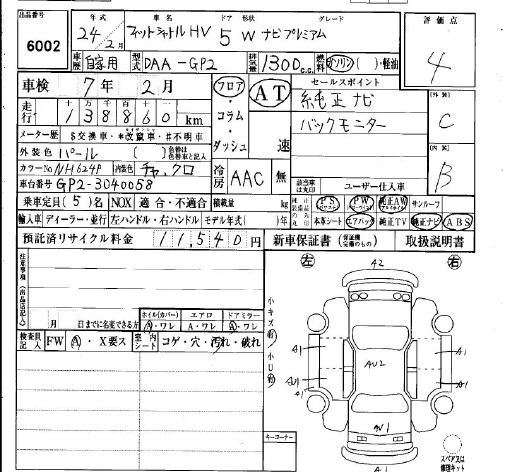 出品番号 年式 車名 ドア 形状 グレード 評価点
6002 24年2月 フィットシャトルHV 5W ナビプレミアム 4
車歴 自家用 型式 DAA-GP2 排気量 1300c.c. 燃料 ガソリン・( )・軽油
車検 7年 2月 フロア・コラム・ダッシュ AT 速 セールスポイント
走行 十万 138860 km 純正ナビ 外装 C
メーター歴 $交換車・*改竄車・#不明車 バックモニター
外装色 パール 内装 B
カラーNo NH624P 内装色 チャ、クロ 冷房 AAC 無
車台番号 GP2-3040058 該当車は丸印 ユーザー仕入車
乗車定員(5)名 NOX 適合・不適合 積載量 kg PS PW 純正AW サンルーフ
輸入車 ディーラー・並行 左ハンドル・右ハンドル モデル年式( )年 本革シート エアバック 純正TV 純正ナビ ABS
預託済リサイクル料金 11,540円 新車保証書 取扱説明書
注意事項(出品店記入)
月 日までに名変できる方 ホイル(カバー) エアロ ドアミラー
A・ワレ A・ワレ A・ワレ
検査員記入 FW A・X要ス 室内シート コゲ・穴・汚れ・破れ
キーコーナー
左 右
A2
小キズ有 小U有
A1 A1
AU2
AU1 A1
A1
AU1
スペアスは修理キット